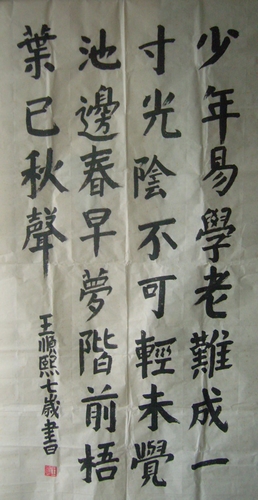 少年易學老難成一
寸光陰不可輕未覺
池邊春早夢階前梧
葉已秋聲
王順熙七歲書